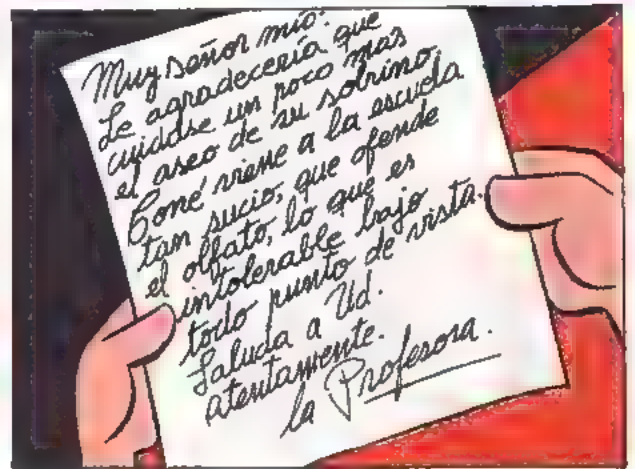 Muy señor mío:
Le agradecería que
cuidase un poco mas
el aseo de su sobrino.
Coné viene a la escuela
tan sucio, que ofende
el olfato, lo que es
intolerable bajo
todo punto de vista.
Saluda a Ud.
atentamente.
la Profesora.